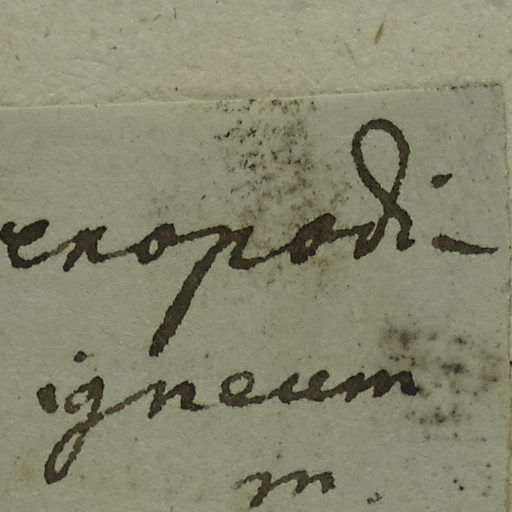 enopodi-
igneum
m.